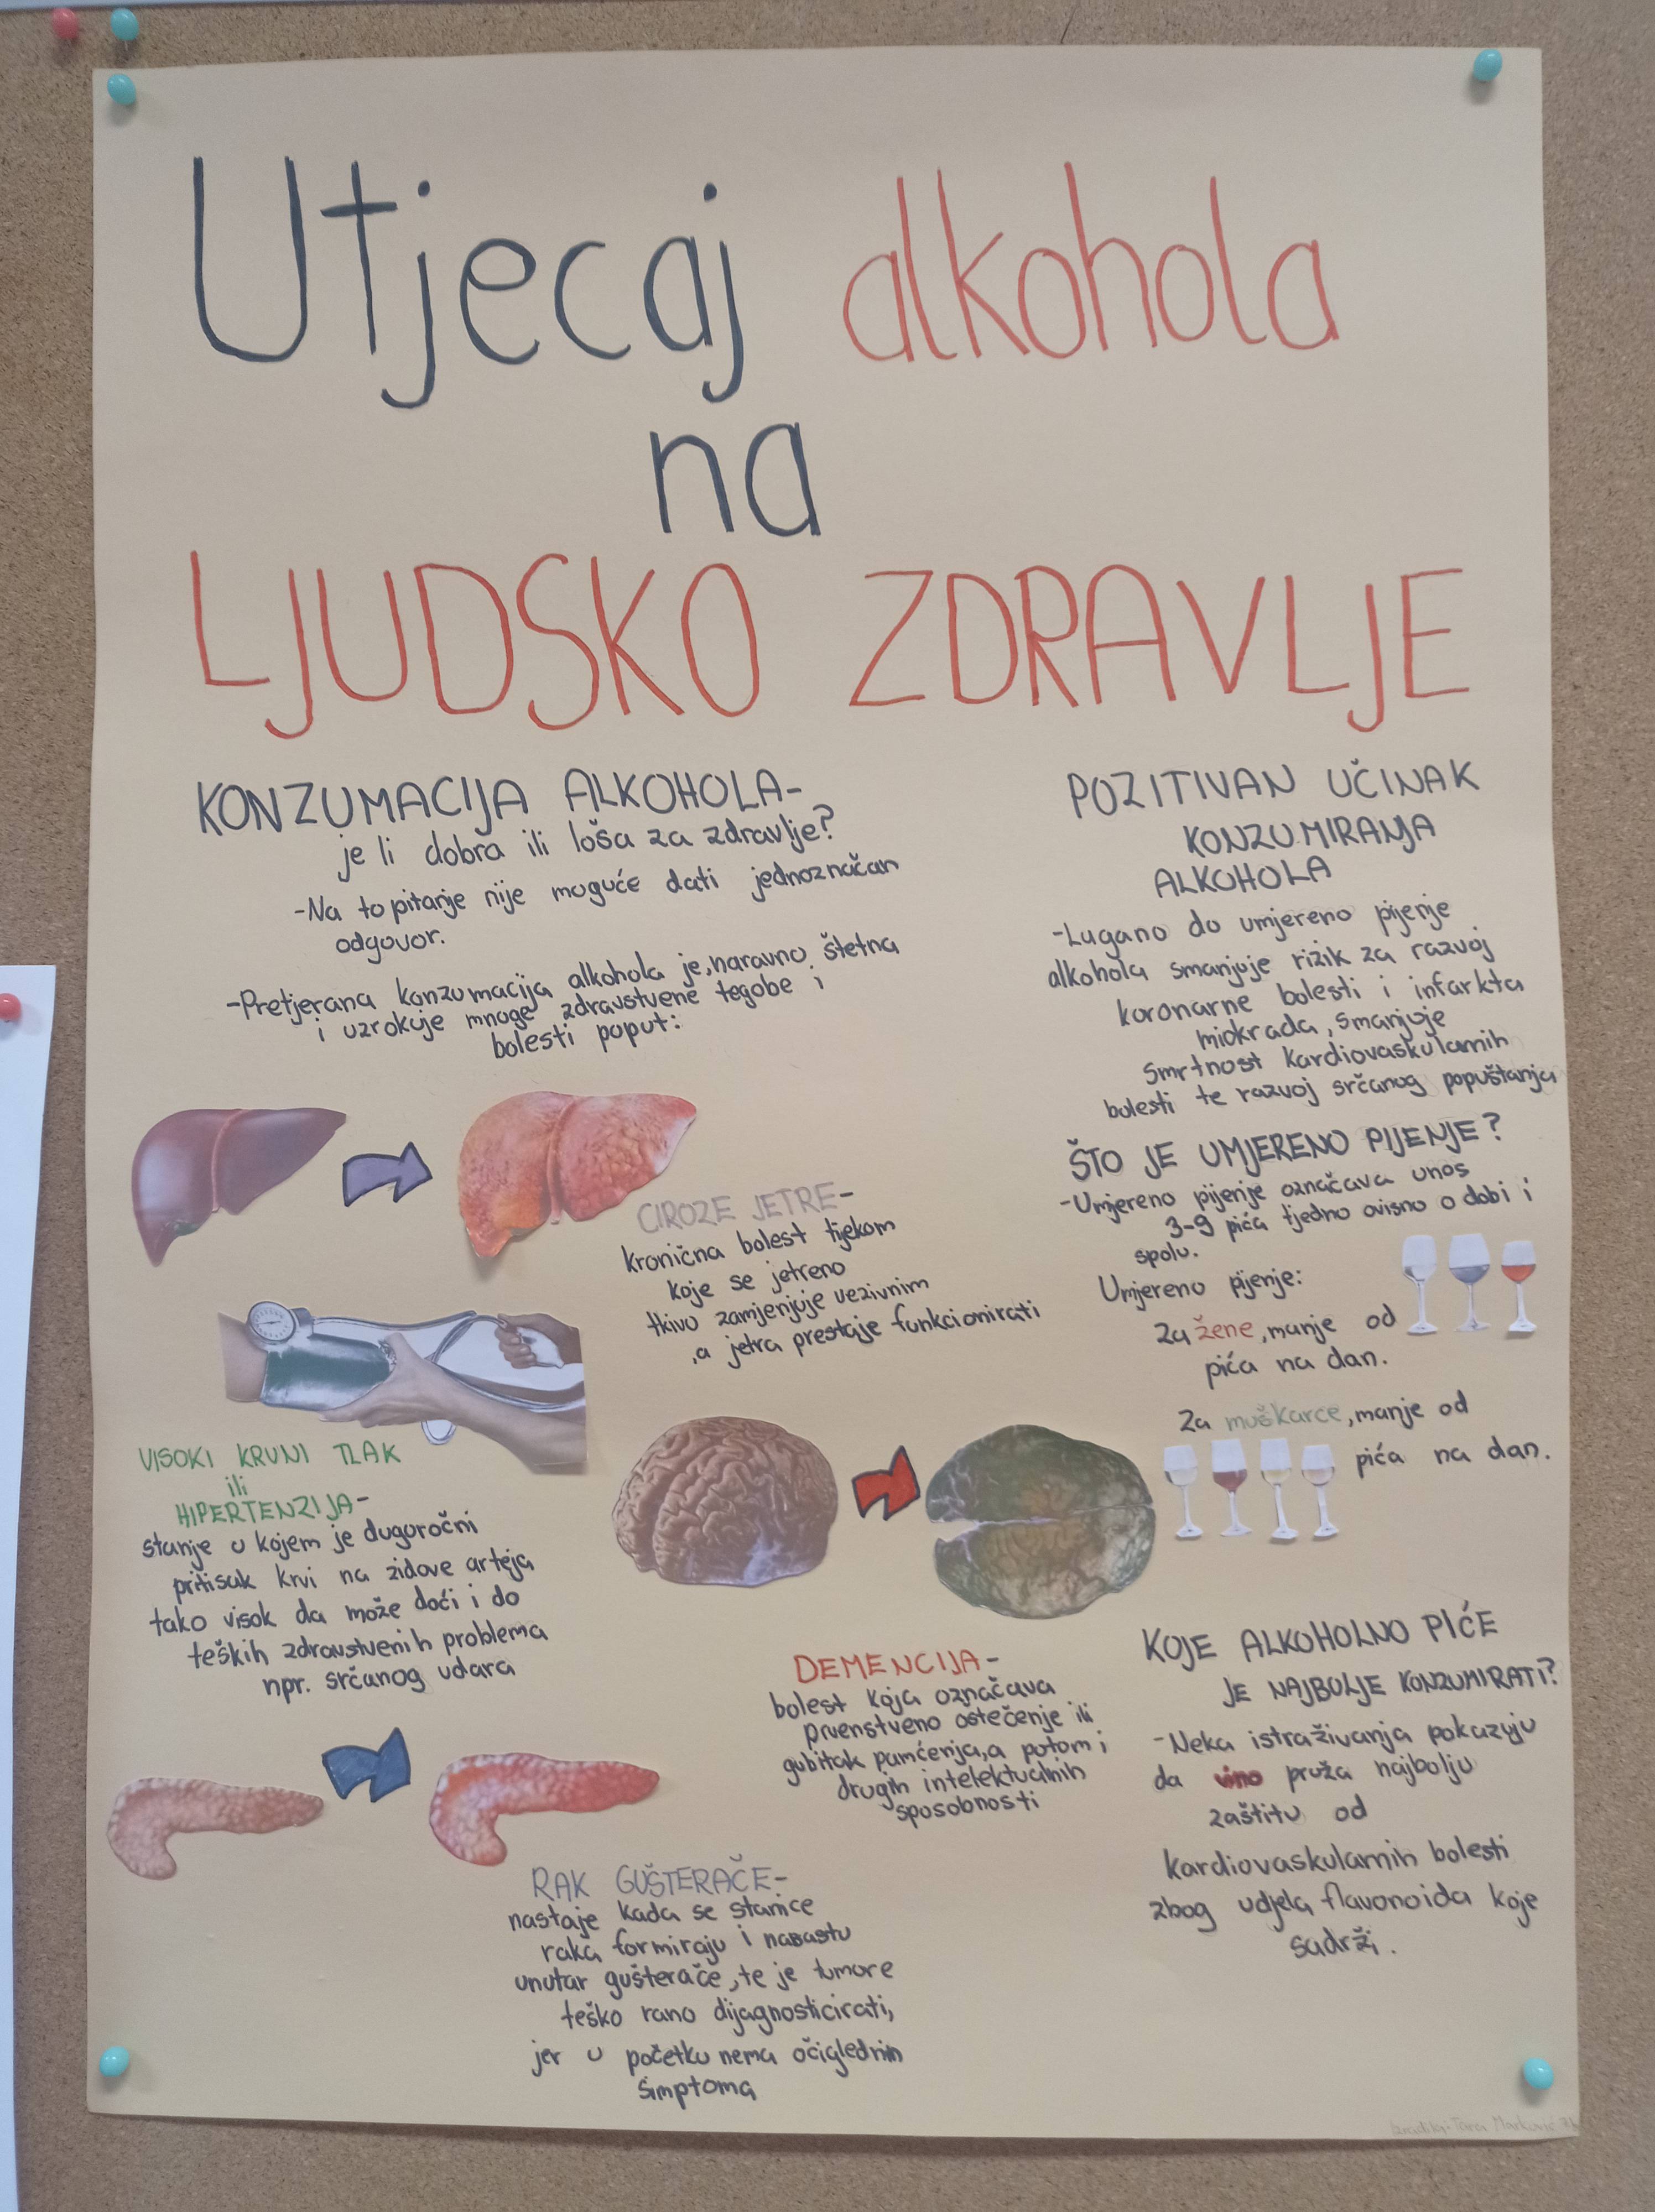 Utjecaj alkohola
na
LJUDSKO ZDRAVLJE
KONZUMACIJA ALKOHOLA-
je li dobra ili loša za zdravlje?
-Na to pitanje nije moguće dati jednoznačan
odgovor.
-Pretjerana konzumacija alkohola je, naravno, štetna
i uzrokuje mnoge zdravstvene tegobe i
bolesti poput:
CIROZE JETRE-
kronična bolest tijekom
koje se jetreno
tkivo zamjenjuje vezivnim
,a jetra prestaje funkcionirati
VISOKI KRVNI TLAK
ili
HIPERTENZIJA-
stanje u kojem je dugoročni
pritisak krvi na zidove arteja
tako visok da može doći i do
teških zdravstvenih problema
npr. srčanog udara
DEMENCIJA-
bolest koja označava
prvenstveno oštećenje ili
gubitak pamćenja,a potom i
drugih intelektualnih
sposobnosti
RAK GUŠTERAČE-
nastaje kada se stanice
raka formiraju i narastu
unutar gušterače, te je tumore
teško rano dijagnosticirati,
jer u početku nema očiglednih
simptoma
POZITIVAN UČINAK
KONZUMIRANJA
ALKOHOLA
-Lagano do umjereno pijenje
alkohola smanjuje rizik za razvoj
koronarne bolesti i infarkta
miokrada, smanjuje
smrtnost kardiovaskularnih
bolesti te razvoj srčanog popuštanja
ŠTO JE UMJERENO PIJENJE?
-Umjereno pijenje označava unos
3-9 pića tjedno ovisno o dobi i
spolu.
Umjereno pijenje:
Za žene, manje od
pića na dan.
Za muškarce, manje od
pića na dan.
KOJE ALKOHOLNO PIĆE
JE NAJBOLJE KONZUMIRATI?
-Neka istraživanja pokazuju
da vino pruža najbolju
zaštitu od
kardiovaskularnih bolesti
zbog udjela flavonoida koje
sadrži.
Tara Marković